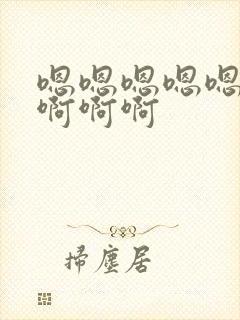 嗯嗯嗯嗯嗯
啊啊啊
掃塵居